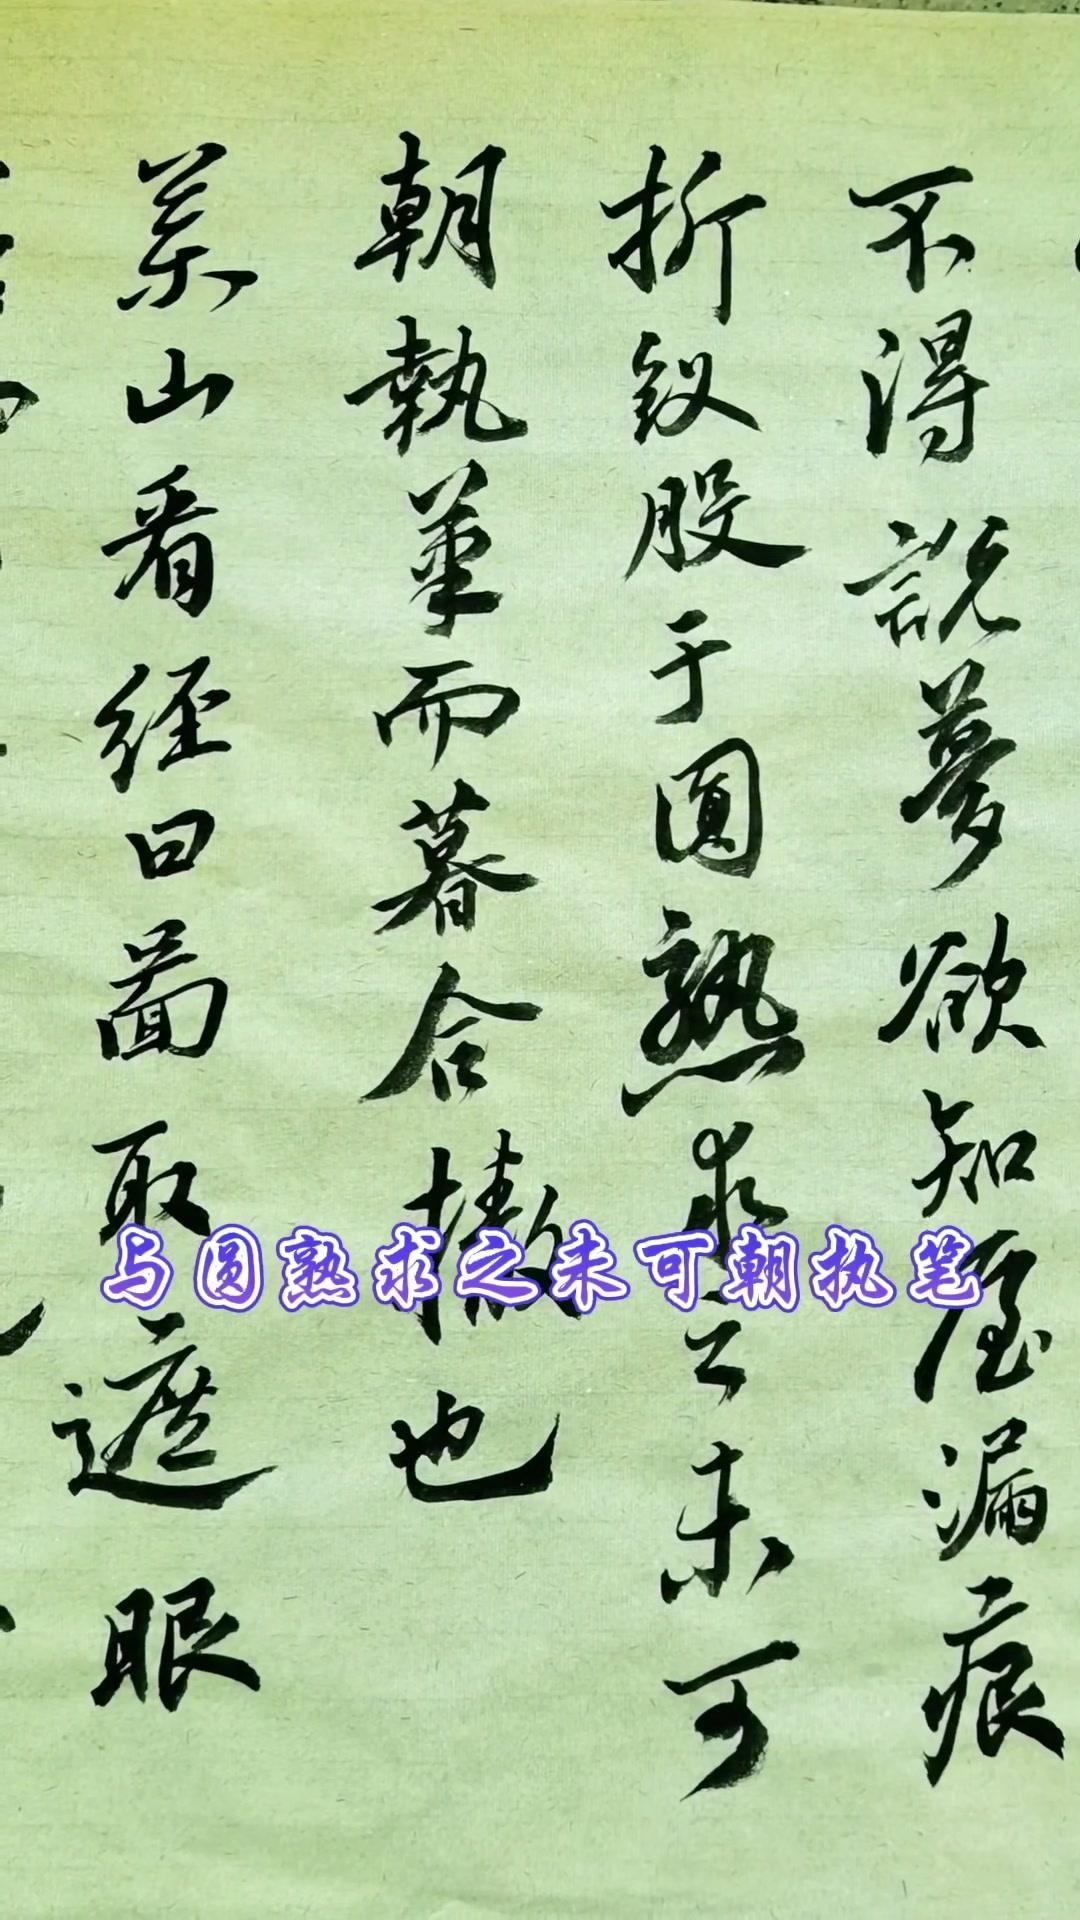 不得說夢欲知屋漏痕
折釵股于圓熟求之未可
朝執筆而暮合撽也
藥山看經曰圖取遮眼
与圆熟求之未可朝执笔